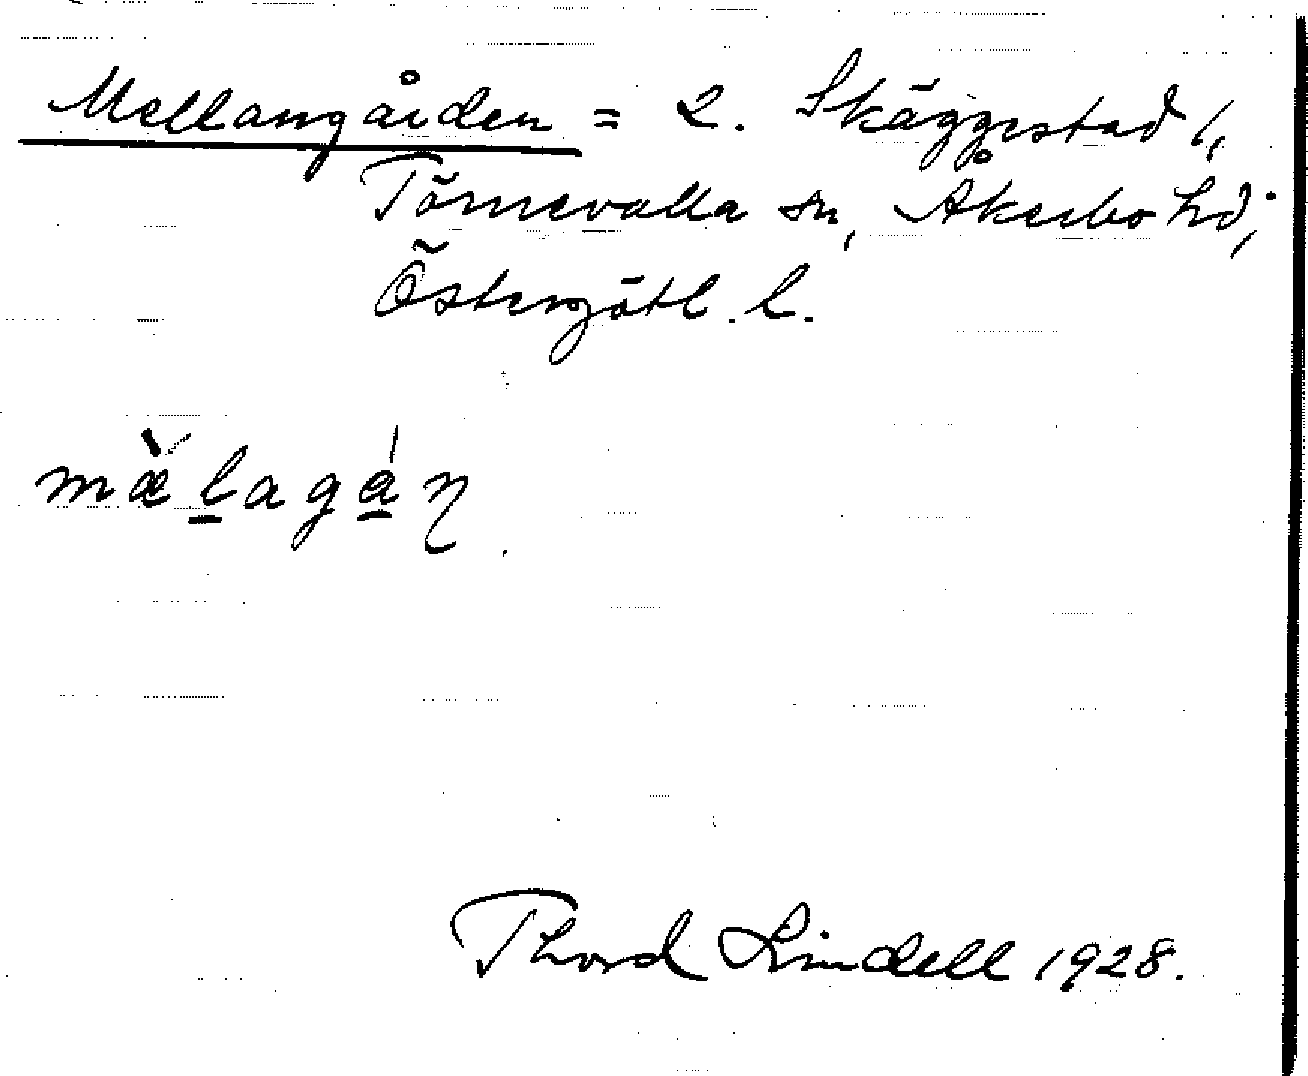 Mellangården = 2. Skäggestad 1,
Törnevalla sn, Åkerbo hd,
Östergötl. l.
mæ̀lagán
Thord Lindell 1928.